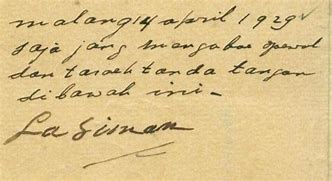 malang 14 april 1929
saja jang mengakoe
dan taroek tanda tangan
di bawah ini -
La Sisman